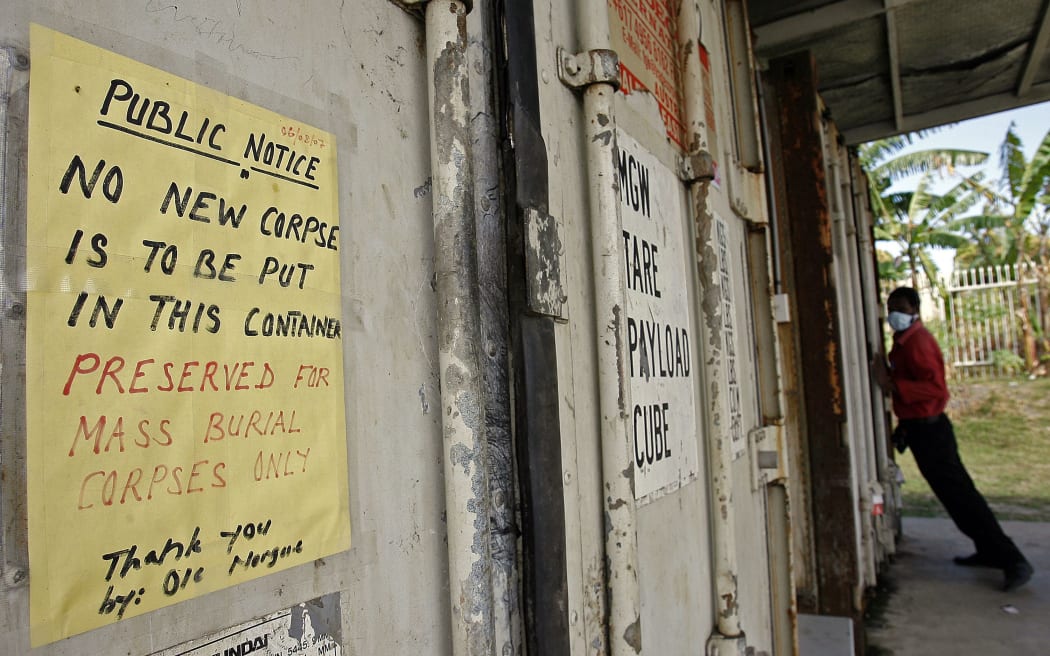 PUBLIC NOTICE
06/08/07
NO NEW CORPSE
IS TO BE PUT
IN THIS CONTAINER
PRESERVED FOR
MASS BURIAL
CORPSES ONLY
Thank you
by: OIC Morgue
MGW
TARE
PAYLOAD
CUBE